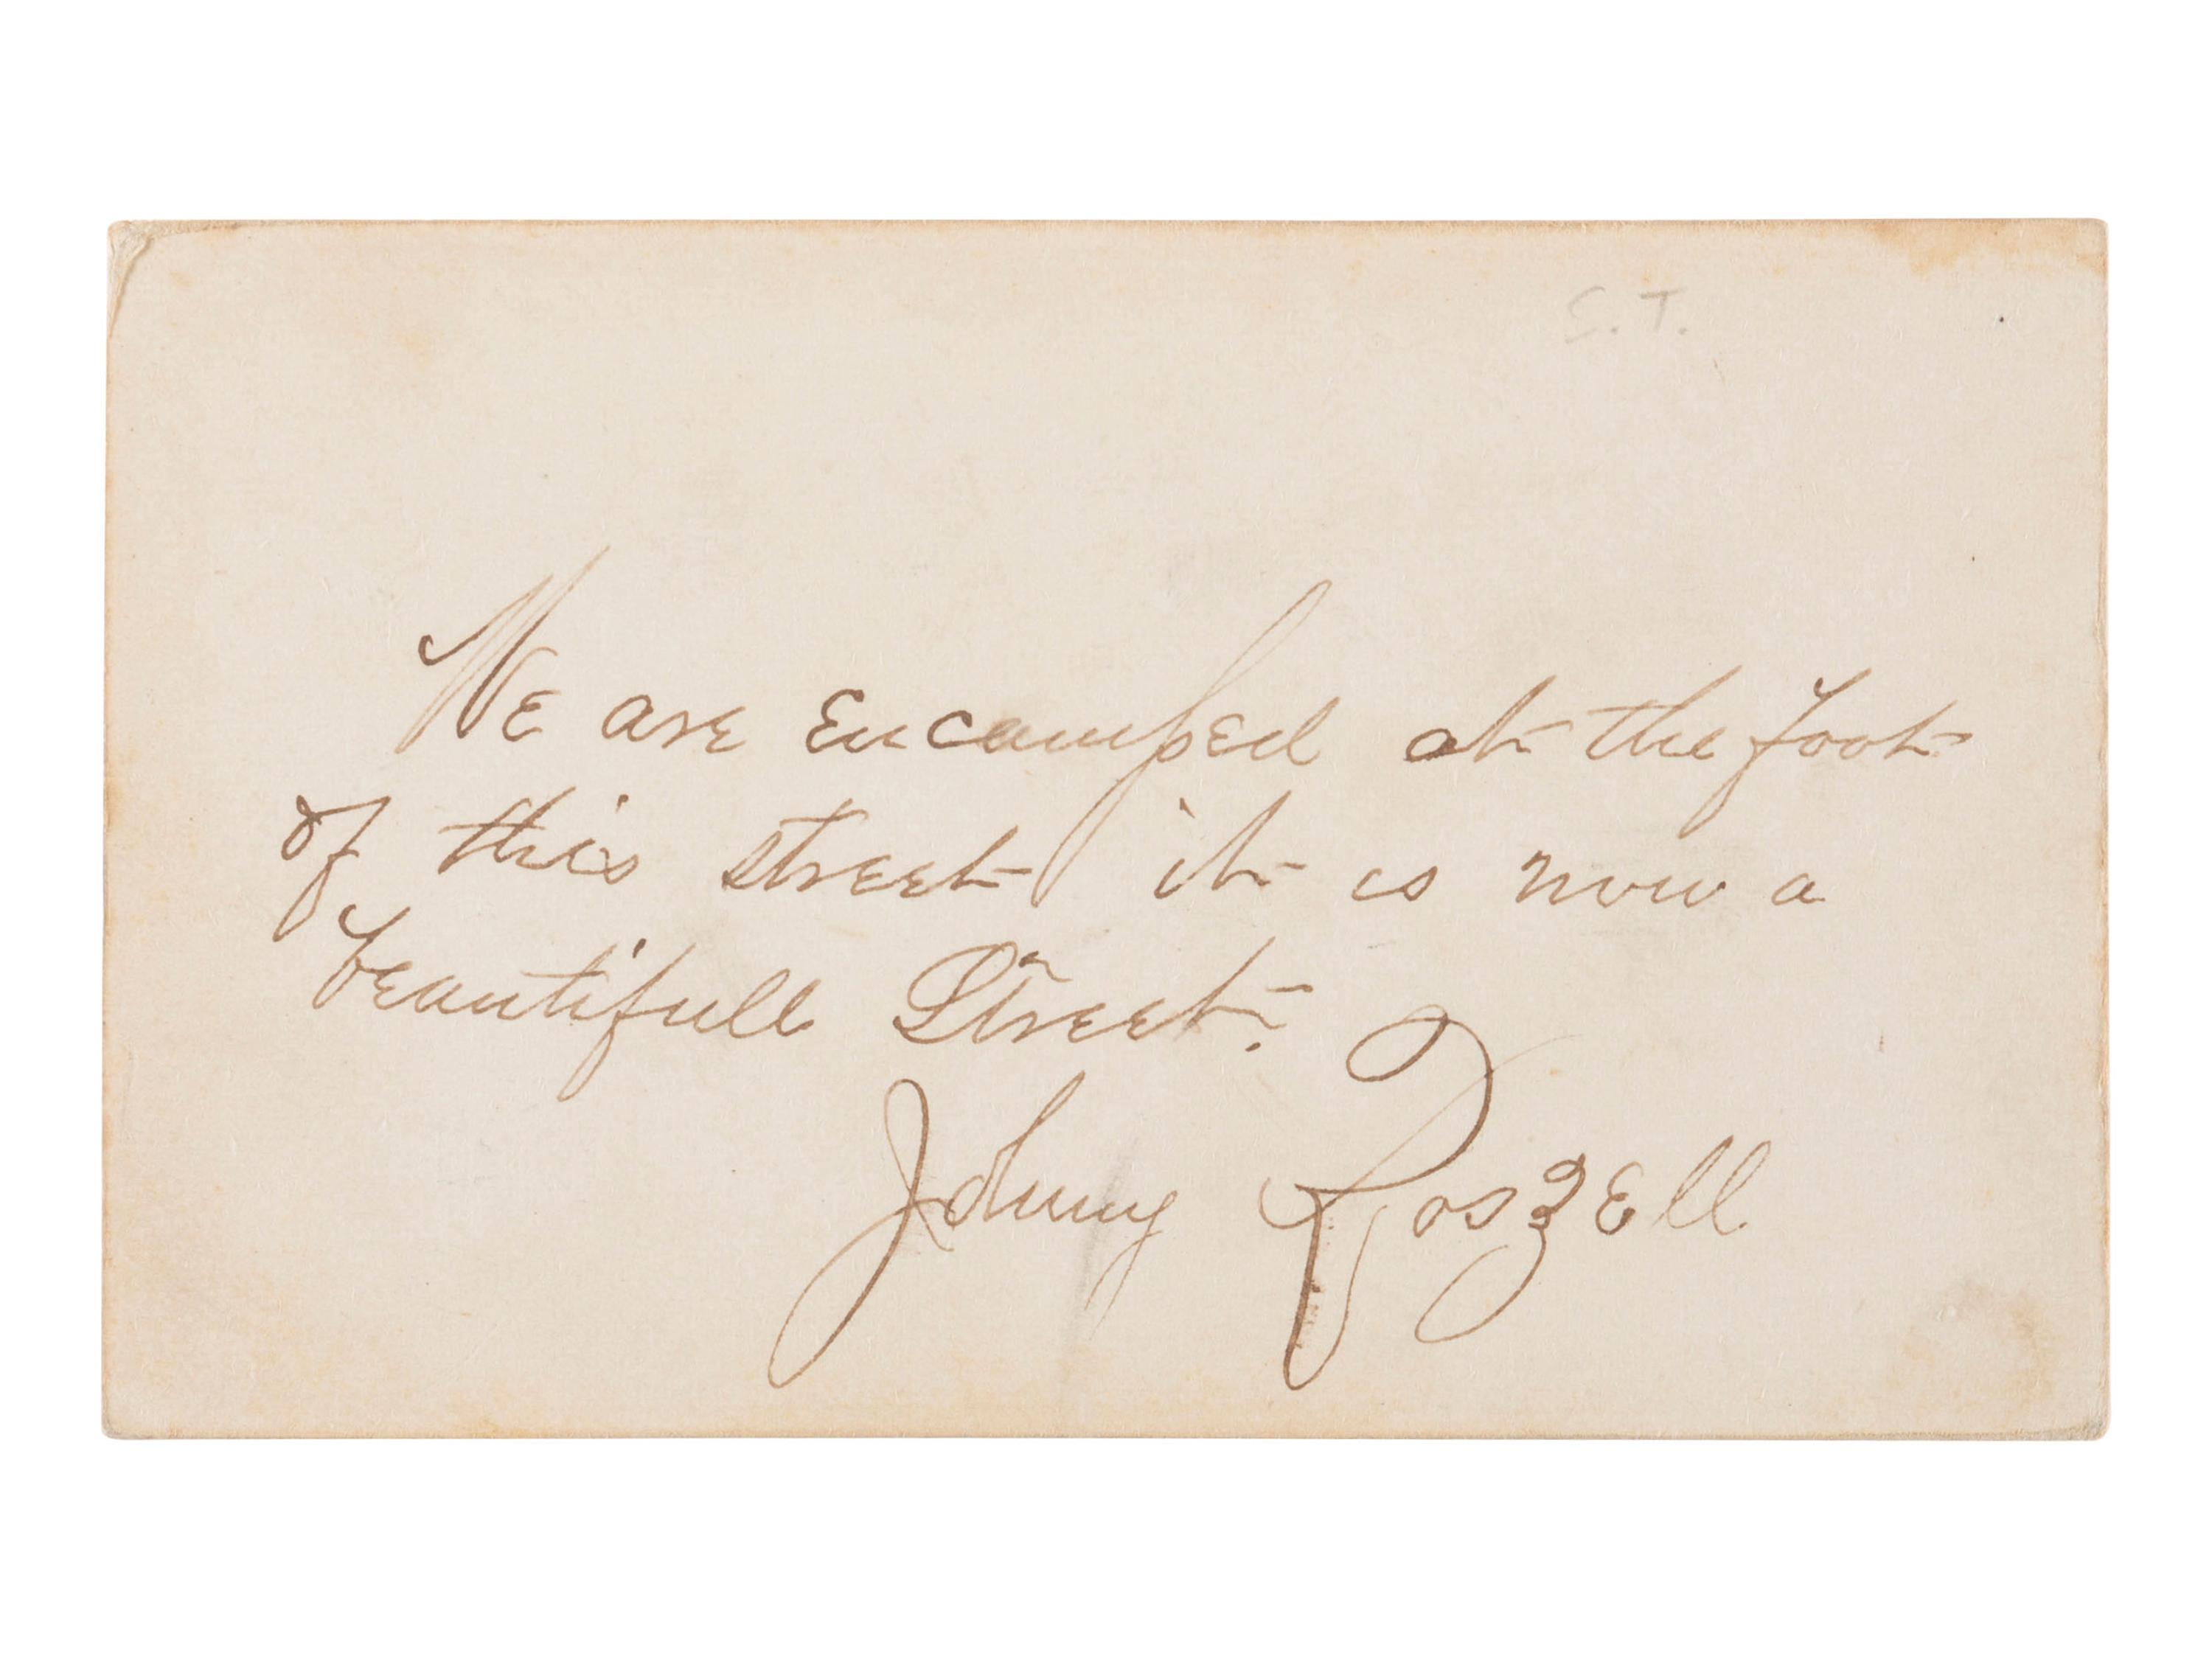 S.T.
We are encamped at the foot
of this street it is now a
beautifull Street.
Johnny Roszell